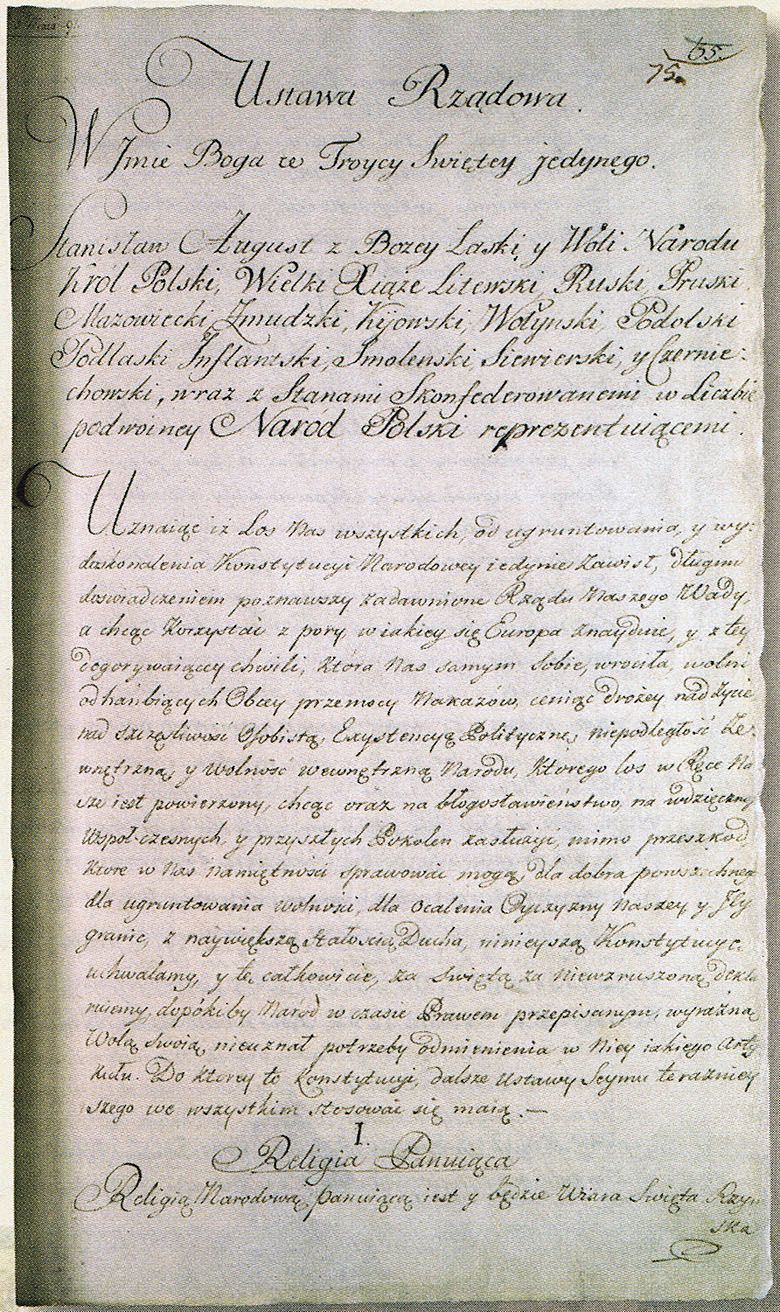 55.
75.
Ustawa Rządowa.
W Jmie Boga w Troycy Swiętey jedynego.
Stanisław August z Bozey Łaski, y Woli Narodu
Król Polski, Wielki Xiąże Litewski, Ruski, Pruski,
Mazowiecki, Zmudzki, Kijowski, Wołynski, Podolski
Podlaski Inflantski, Smolenski, Siewierski, y Czernie:
chowski, wraz z Stanami Skonfederowanemi w Liczbie
podwoiney Naród Polski reprezentuiącemi.
Uznaiąc iż Los Nas wszystkich, od ugruntowania, y wy:
doskonalenia Konstytucyi Narodowey iedynie Zawisł, długim
doswiadczeniem poznawszy zadawnione Rządu Naszego Wady,
a chcąc Korzystać z pory, w iakiey się Europa znayduie, y z tey
dogorywaiącey chwili, która Nas samym sobie, wrociła, wolni
od hańbiących Obcey przemocy Nakazów, ceniąc drożey nad Zycie
nad szczęśliwość Osobistą, Exystencyą Polityczną, niepodległość Ze:
wnętrzną, y wolność wewnętrzną Narodu, Ktorego los w Ręce Na
sze iest powierzony, chcąc oraz na błogosławieństwo, na wdzięczność
Wspoł-czesnych, y przyszłych Pokolen zasłużyć, mimo przeszkod
Ktore w Nas namiętności sprawować mogą, dla dobra powszechnego
dla ugruntowania wolności, dla ocalenia Oyczyzny Naszey, y Jey
granic, z największą stałością Ducha, ninieyszą Konstytucye
uchwalamy, y tę całkowicie, za świętą za Niewzruszoną dekla
ruiemy, dopókiby Naród w czasie Prawem przepisanym, wyraźną
Wolą Swoią, nieuznał potrzeby odmienienia w Niey iakiego Arty
kułu. Do ktorey to Konstytucyi, dalsze Ustawy Seymu teraźniey
szego we wszystkim stosować się maią. —
I.
Religia Panuiąca
Religią Narodową panuiącą iest y będzie Wiara Swięta Rzym
ska